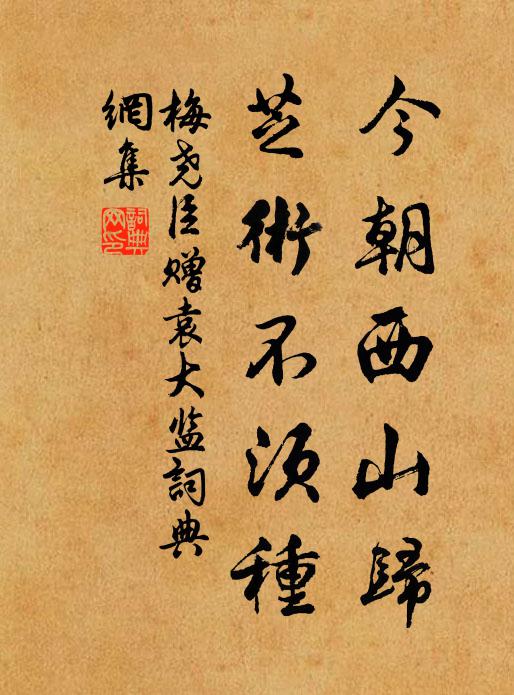 今朝西山歸
芝術不須種
梅尧臣贈袁大监詞典
網集
詞典網印